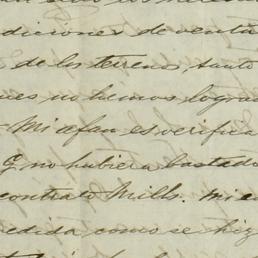 diciones de venta
de los terrenos, tanto
ues no hemos logrado
Mi afan es verifica
G. no hubiera bastado
contrato Mills. Mi en
edida como se hiz